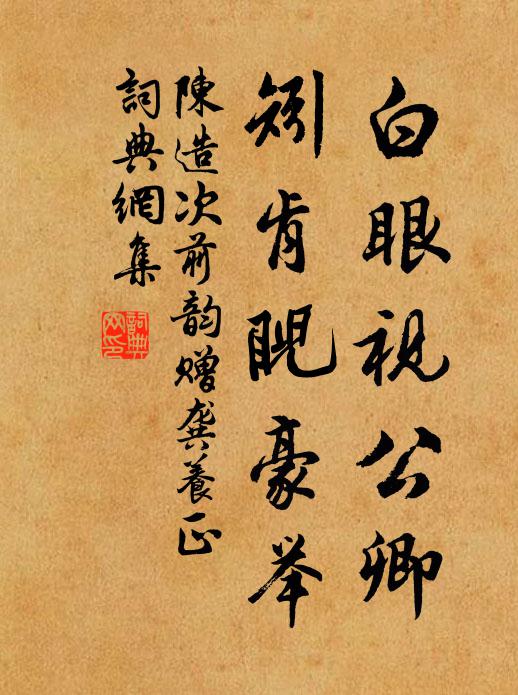 白眼視公卿
矧肯睨豪举
陳造次前韵赠龚養正
詞典網集
詞典网印